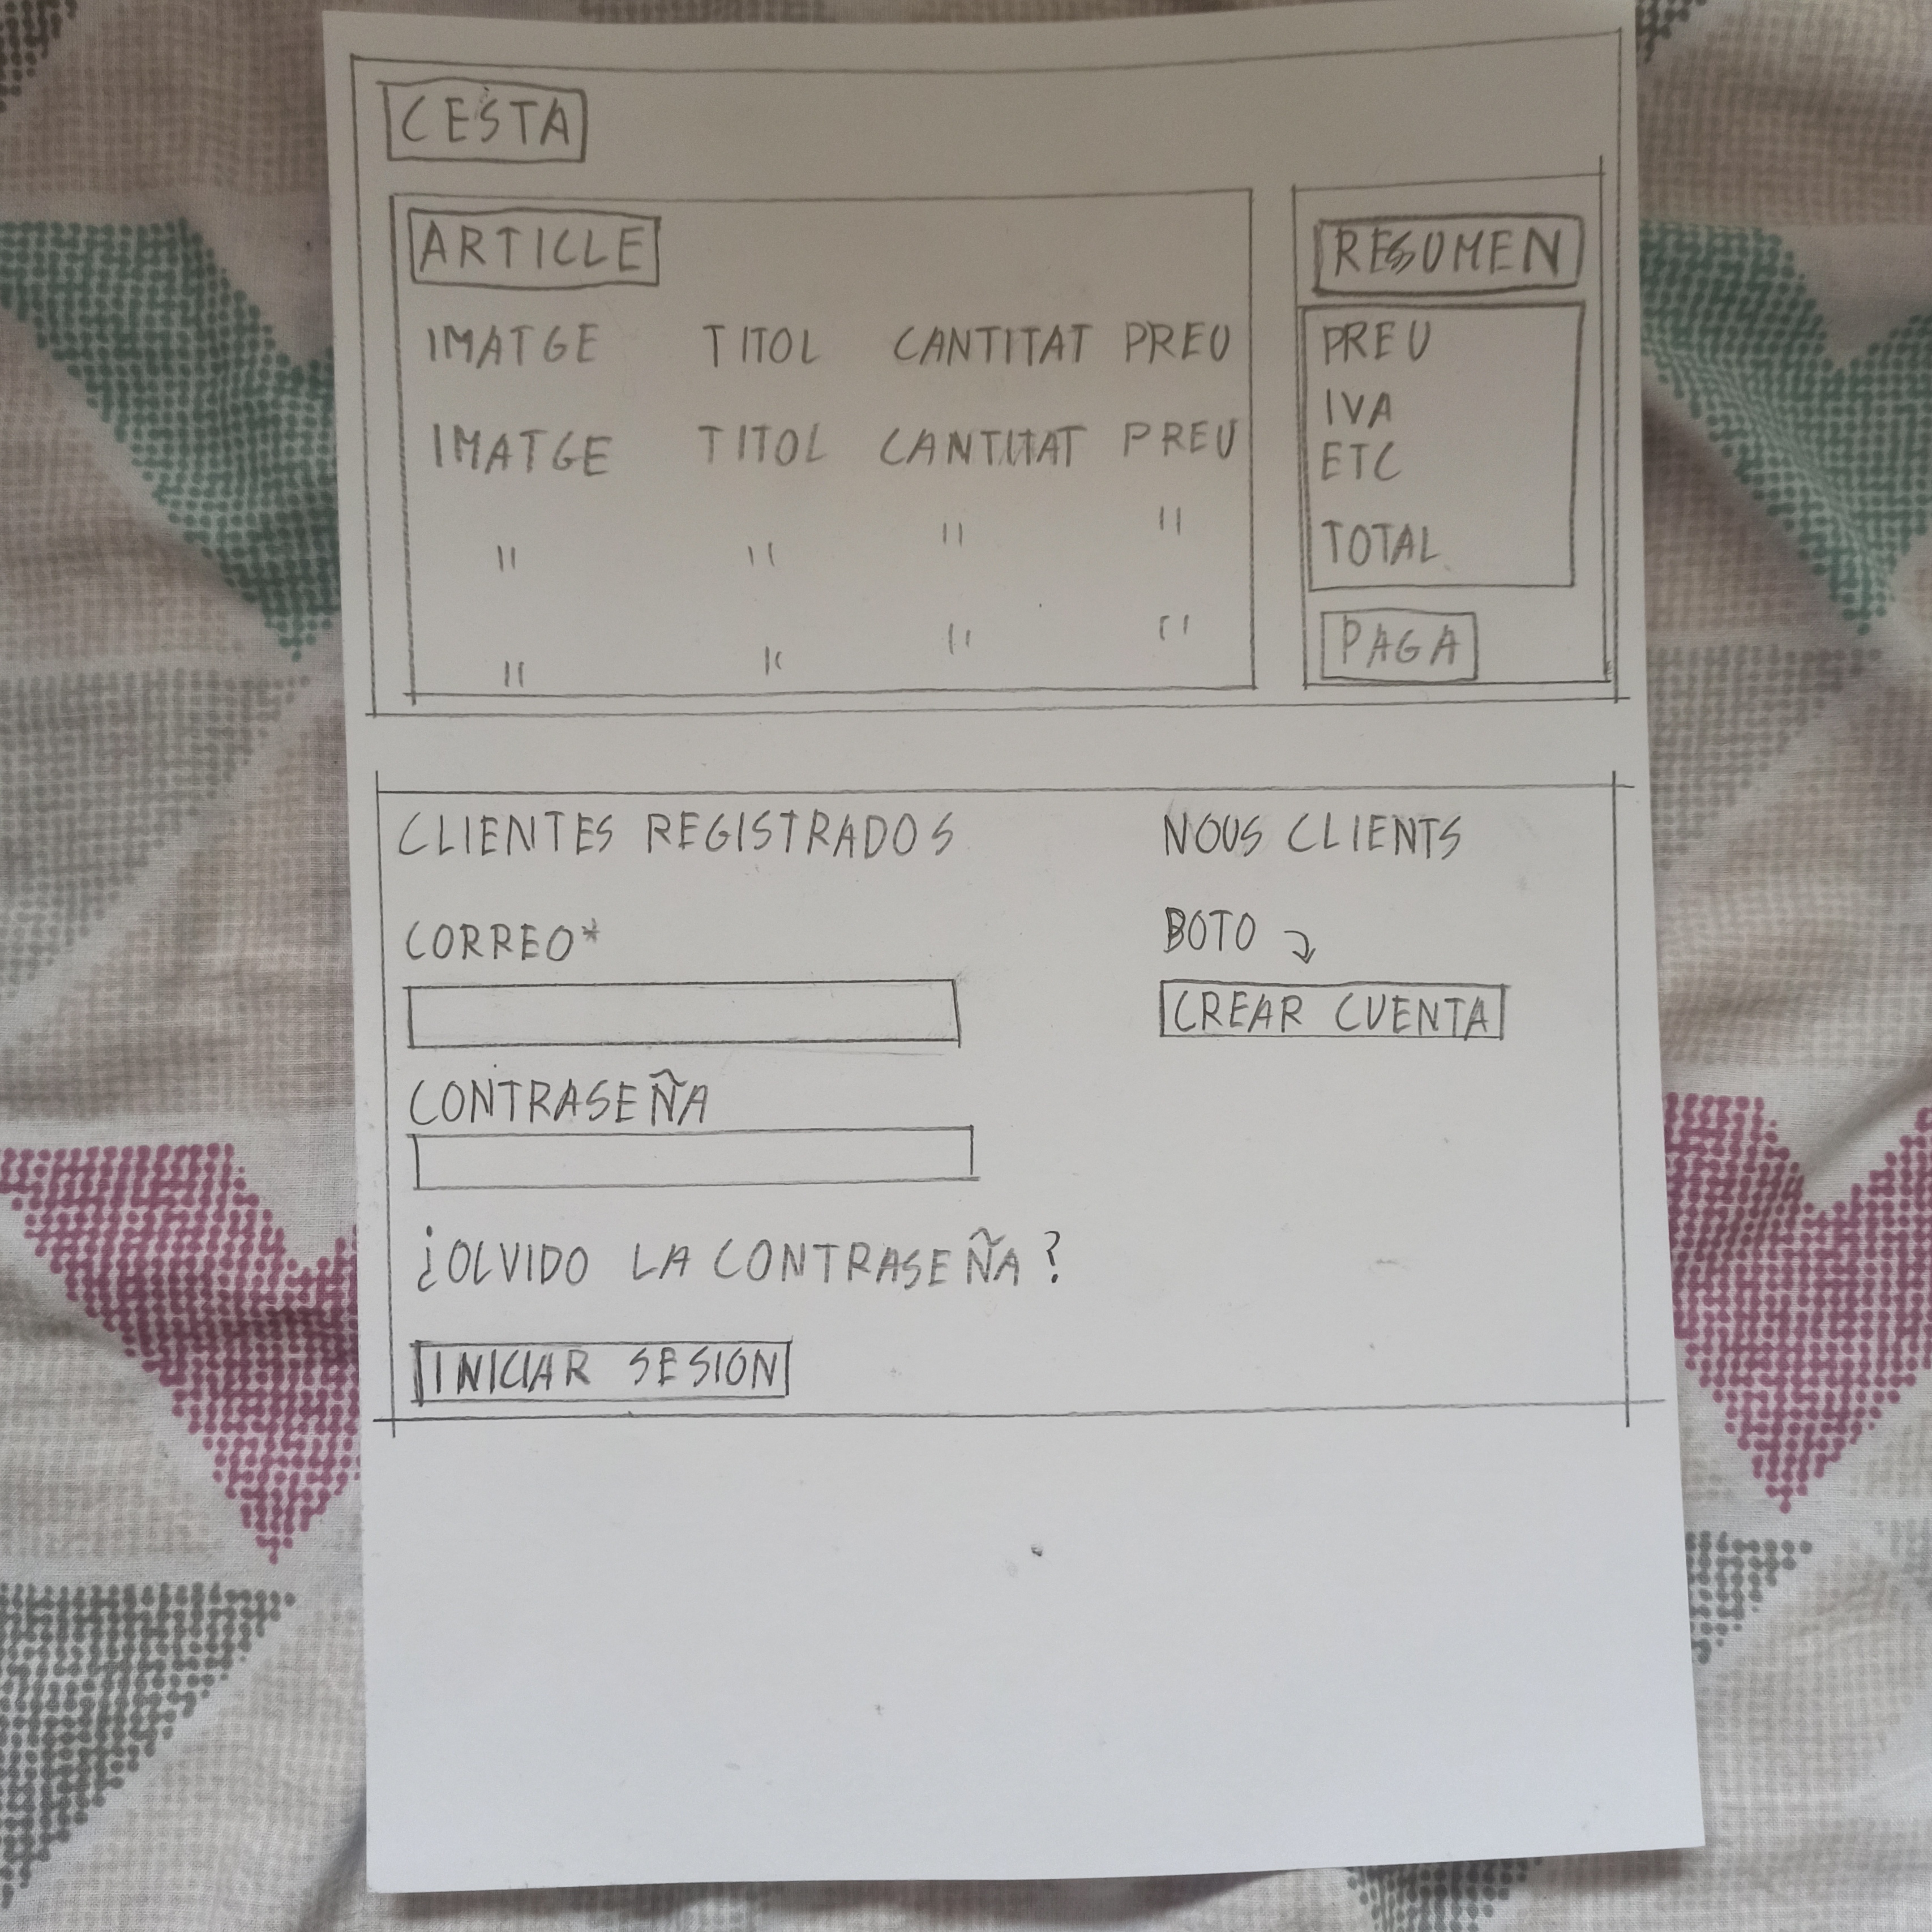 CESTA
ARTICLE
IMATGE TITOL CANTITAT PREU
IMATGE TITOL CANTITAT PREU
" " " "
" " " "
RESUMEN
PREU
IVA
ETC
TOTAL
PAGA
CLIENTES REGISTRADOS
CORREO*
CONTRASEÑA
¿OLVIDO LA CONTRASEÑA?
INICIAR SESION
NOUS CLIENTS
BOTO
CREAR CUENTA